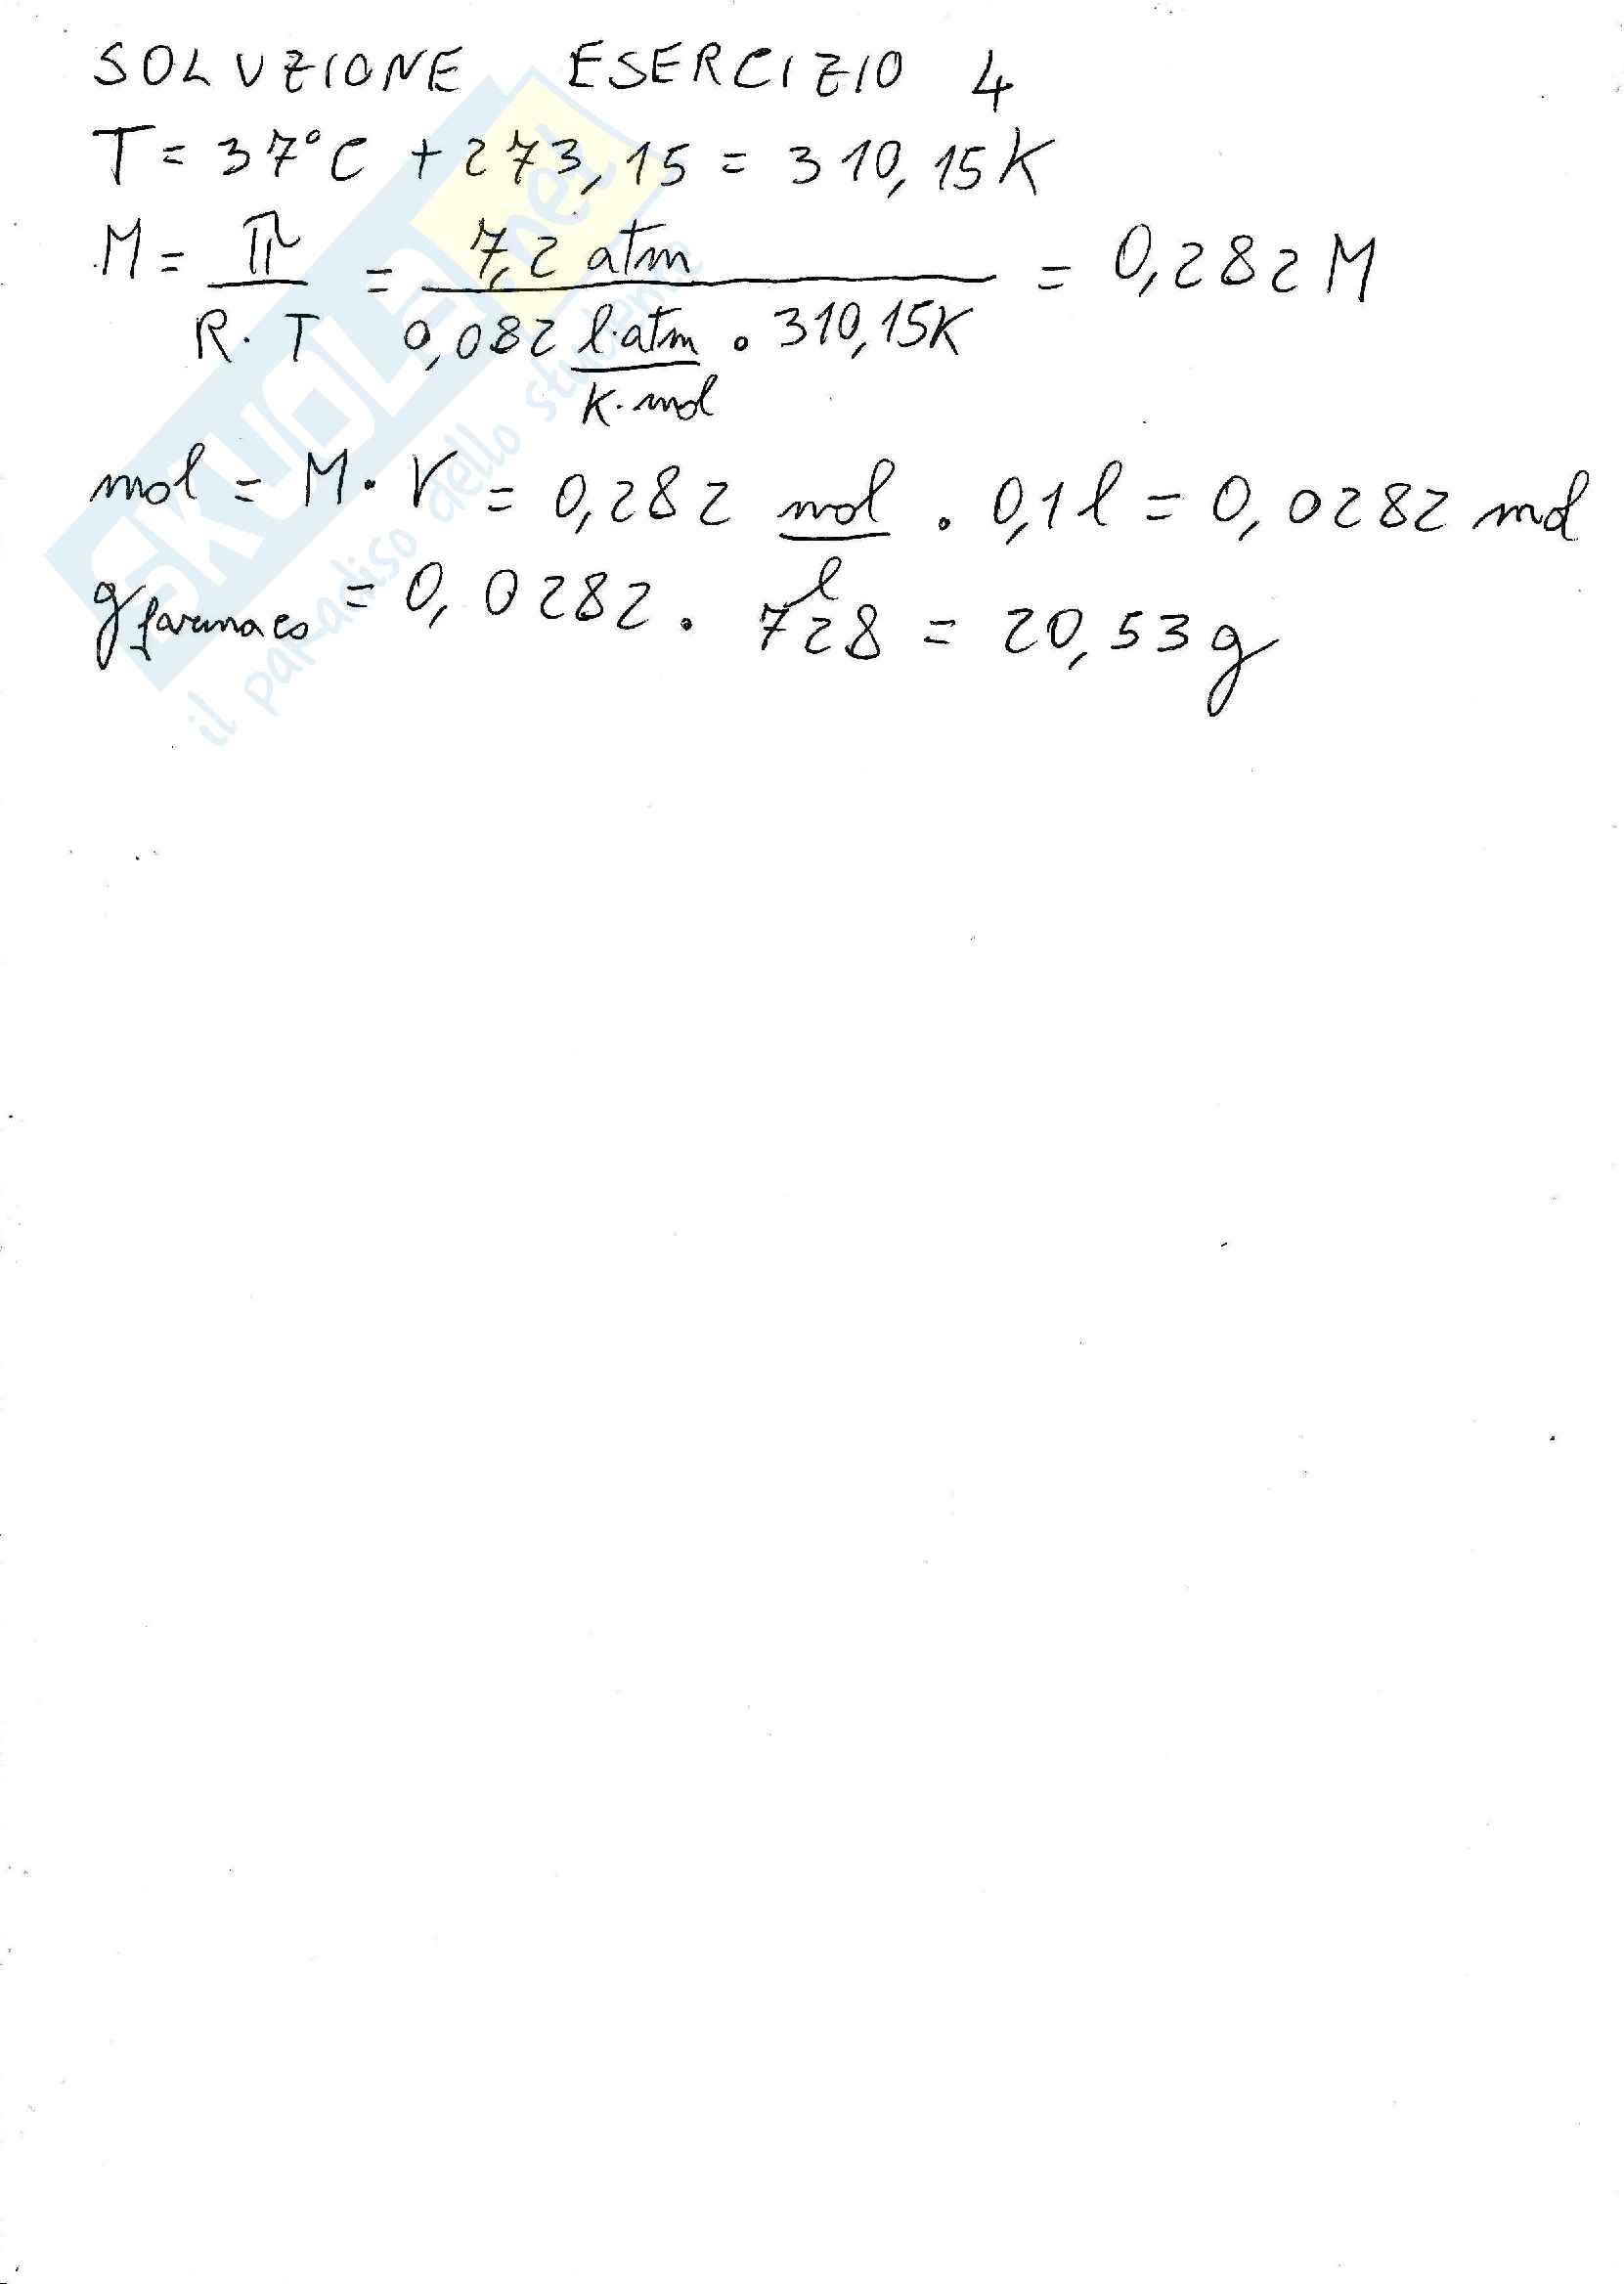 SOLUZIONE ESERCIZIO 4
T = 37°C + 273,15 = 310,15K
M = π / R·T = 7,2 atm / 0,082 l·atm / K·mol · 310,15K = 0,282 M
mol = M · V = 0,282 mol / l · 0,1 l = 0,0282 mol
g farmaco = 0,0282 · 728 = 20,53 g
SKUOLA.net
il paradiso dello studente